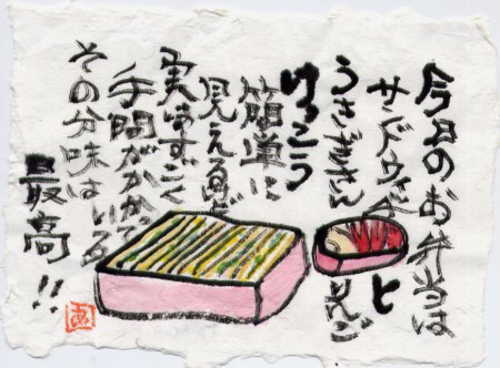 今日のお弁当は
サンドウィッチと
うさぎさんりんご
けっこう
簡単に
見えるけど
実はすごく
手間がかかっている
その分味は
最高!!